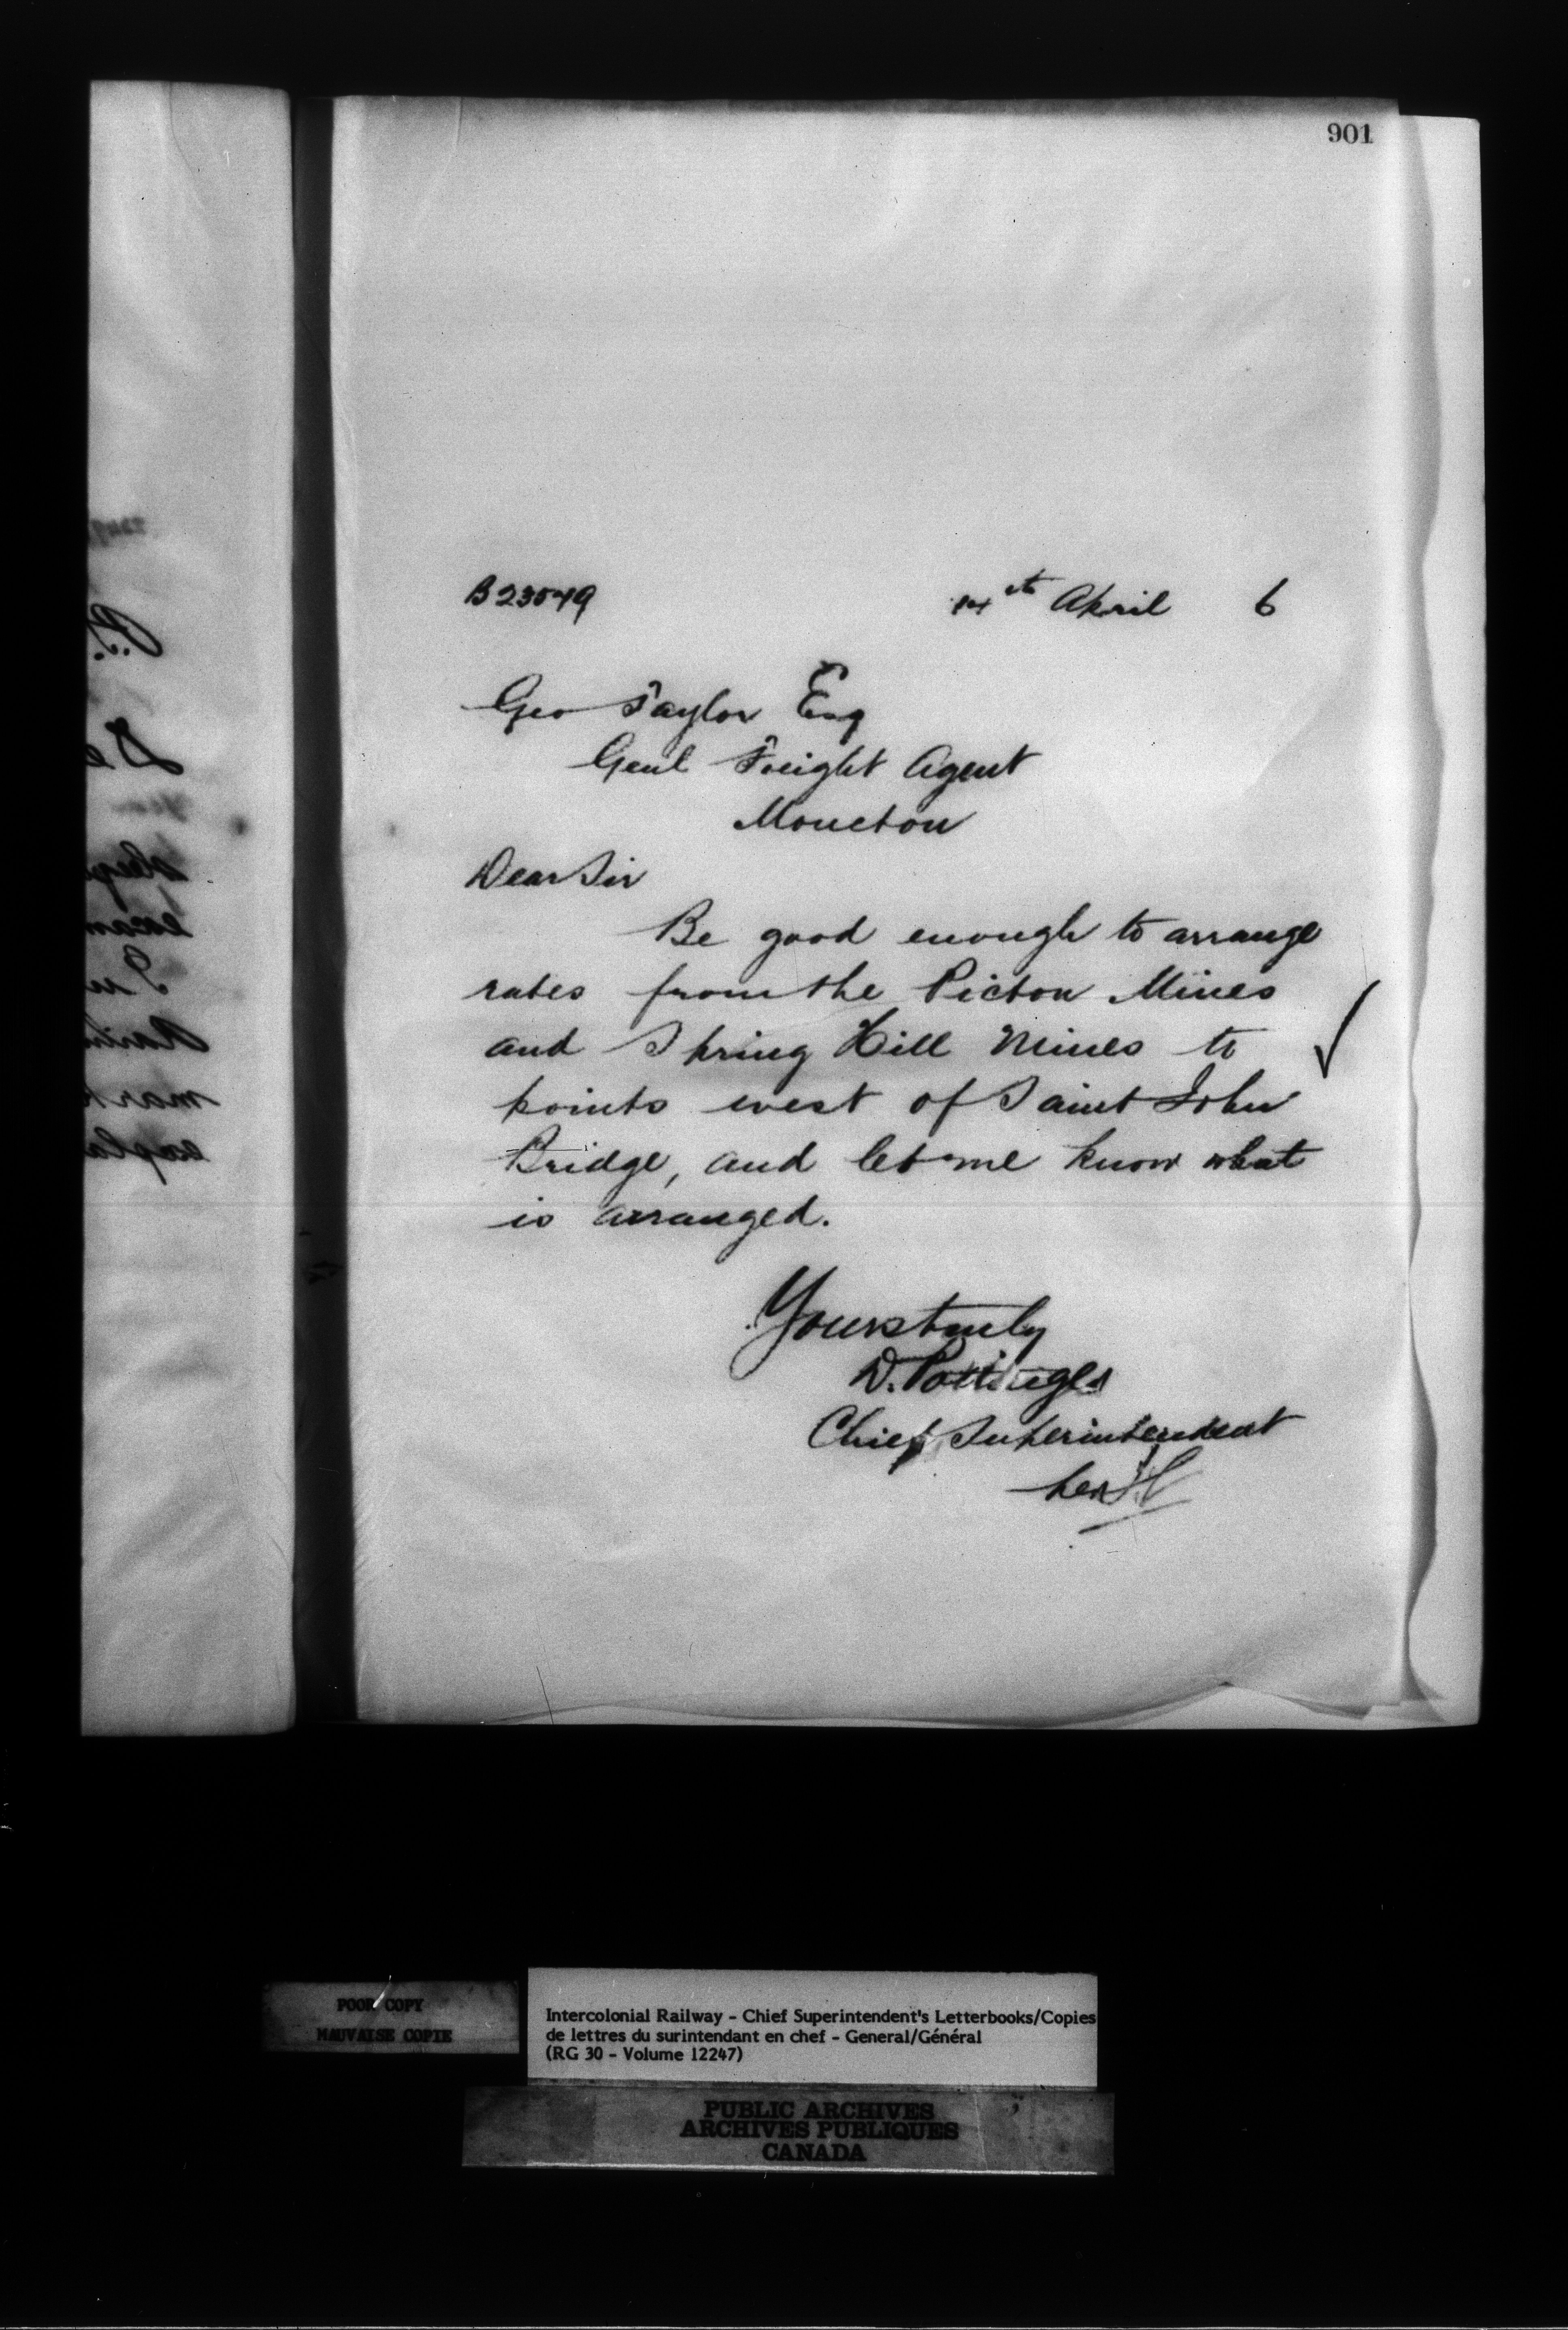 901
B23049
14th April 6
Geo Taylor Esq
Genl Freight Agent
Moncton
Dear Sir
Be good enough to arrange
rates from the Pictou Mines
and Spring Hill Mines to
points west of Saint John
Bridge, and let me know what
is arranged.
Yours truly
D. Pottinger
Chief Superintendent
per
POOR COPY
MAUVAISE COPIE
Intercolonial Railway - Chief Superintendent's Letterbooks/Copies
de lettres du surintendant en chef - General/Général
(RG 30 - Volume 12247)
PUBLIC ARCHIVES
ARCHIVES PUBLIQUES
CANADA